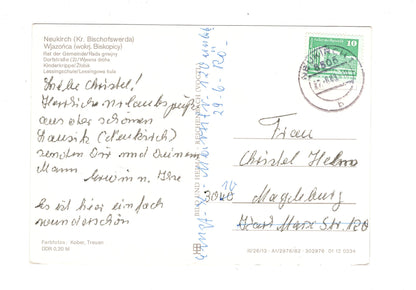 Neukirch (Kr. Bischofswerda)
Wjazońca (wokrj. Biskopicy)
Rat der Gemeinde/Rada gmejny
Dorfstraße (2)/Wjesna dróha
Kinderkrippe/Žłobik
Lessingschule/Lessingowa šula
Liebe Christel!
Herzliche Urlaubsgrüße
aus der schönen
Lausitz (Neukirch)
senden Dir und Deinem
Mann Erwin u. Ilse
Es ist hier einfach
wunderschön
Farbfotos: Kober, Trepan
DDR 0,20 M
10
NEUKIRCH
8506
b
Frau
Christel Helmo
3040 14 Magdeburg
Karl Marx Str. 120
IV/26/13 A1/2976/82 302876 01 12 0334